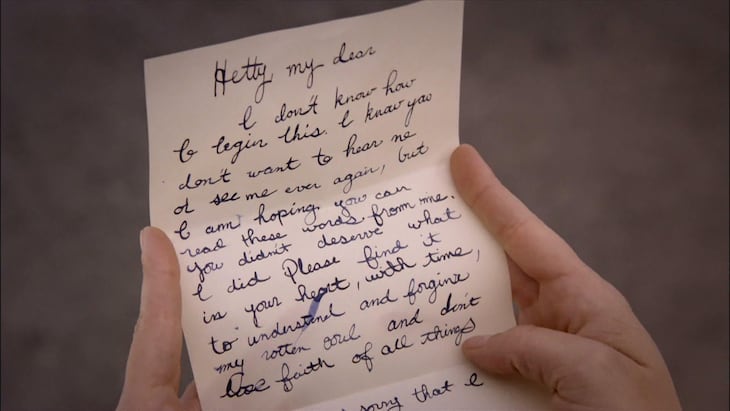 Hetty, my dear
I don't know how
to begin this. I know you
don't want to hear me
or see me ever again, but
I am hoping you can
read these words from me.
You didn't deserve what
I did Please find it
in your heart, with time,
to understand and forgive
my rotten soul and don't
lose faith of all things
sorry that I